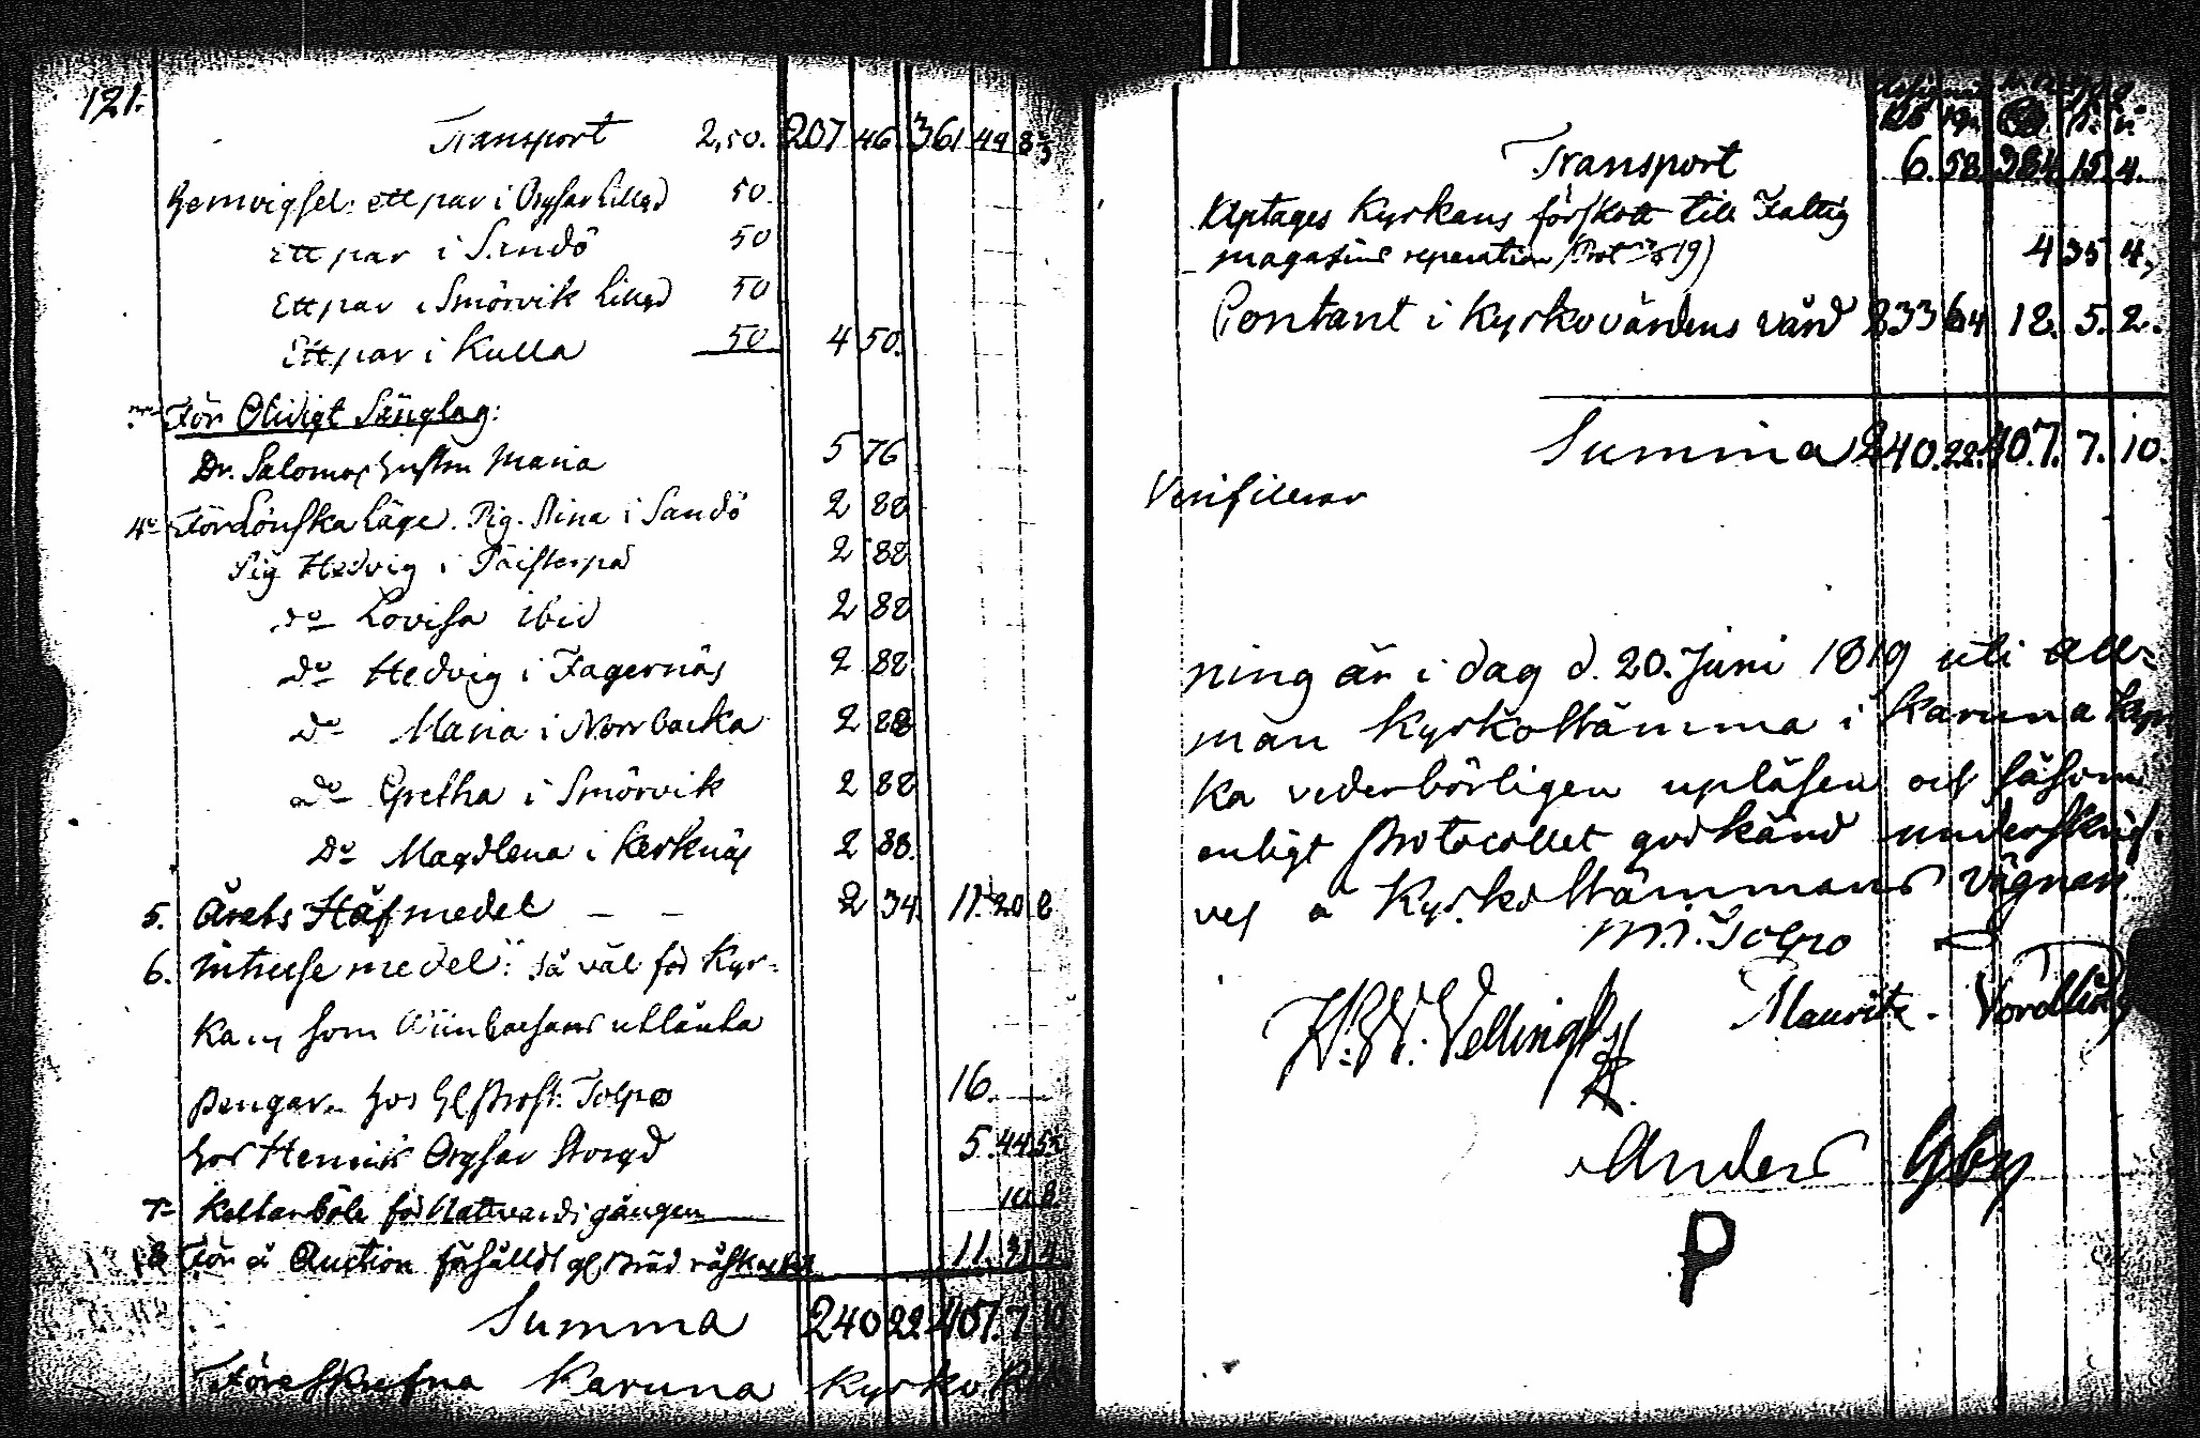 121.
Transport 2,50. 207 46. 361 49 8 2/3
Hemvigsel: ett par i Orysar Lillgd 50.
ett par i Sandö 50
Ett par i Smörvik Lillgd 50
Ett par i Kulla 50 4 50.
För Olidigt Sänglag:
Dr. Salomos hustru Maria 5 76
4o För Lönska Läge. Pig. Stina i Sandö 2 88
Pig Hedvig i Päisterpä 2 88
do Lovisa ibid 2 88
do Hedvig i Fagernäs 2 88
do Maria i Norrbacka 2 88
do Gretha i Smörvik 2 88
Do Magdlena i Kerknäs 2 88.
5. Årets Håfmedel – – 2 34. 11. 20 8
6. Intresse medel: så väl för Kyr-
kans som utlånta
pengar. hos Prost: Tolpo 16.
hos Henrik Orysar Storgd 5. 44. 5
7o för Nattvards gången 10. 8.
8 För å Auction försålldt 11. 31 4.
Summa 240 22 407. 7. 10
Föreskrefna Karuna Kyrko
Transport 6. 58. 384. 15. 4.
Uptages Kyrkans förskott till Fattig
magasins reparation 4 35 4.
Contant i Kyrkovärdens vård 233 64 18. 5. 2.
Summa 240. 22. 407. 7. 10.
Verificerar
ning är i dag d. 20. Juni 1819 uti all-
män Kyrkostämma i Karuna
ka vederbörligen upläsen och såsom
enligt Protocollet godkänd underskrif-
ves å Kyrkostämmans vägnar.
M. Tolpo
Maurits
Anders Yby
P